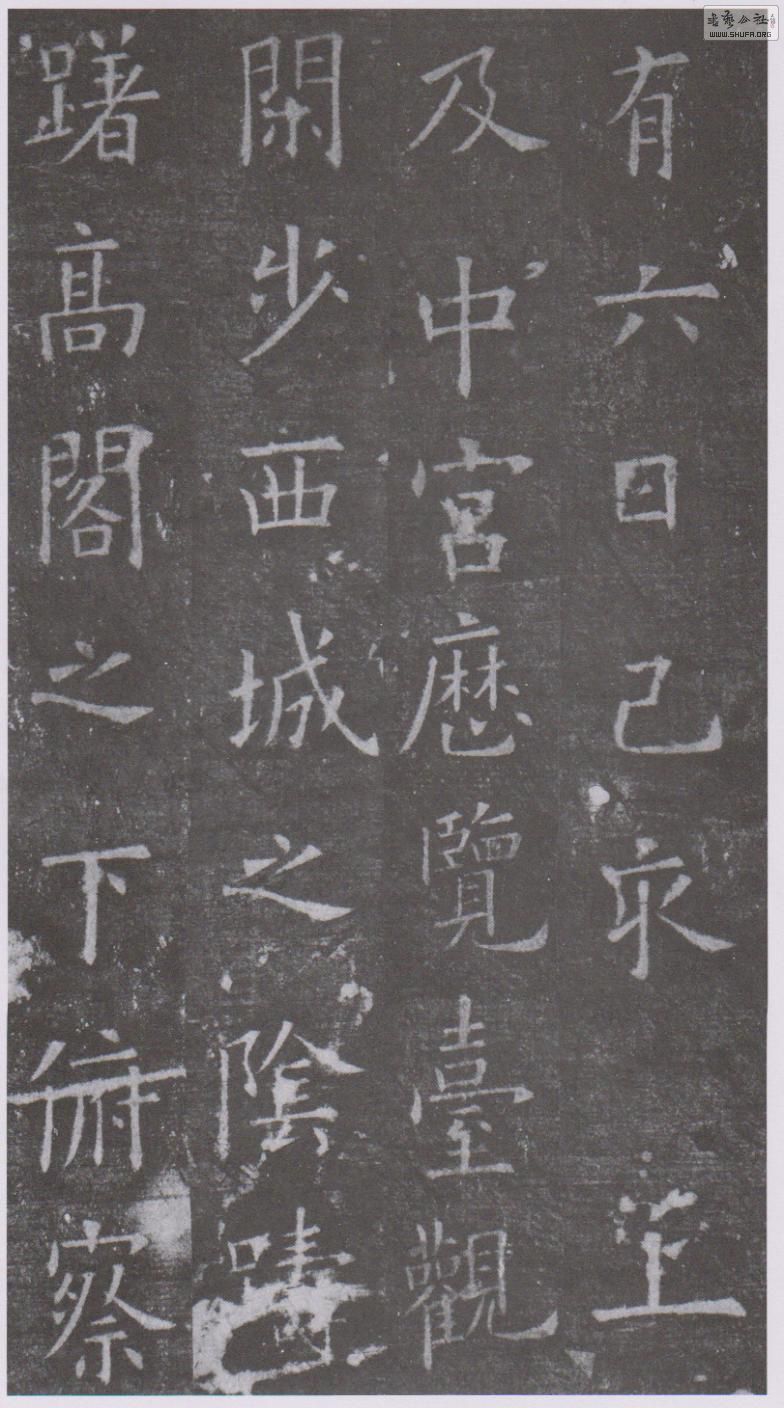 有六日己亥上
及中宮歷覽臺觀
閑步西城之陰躊
躇高閣之下俯察
書藝公社
WWW.SHUFA.ORG